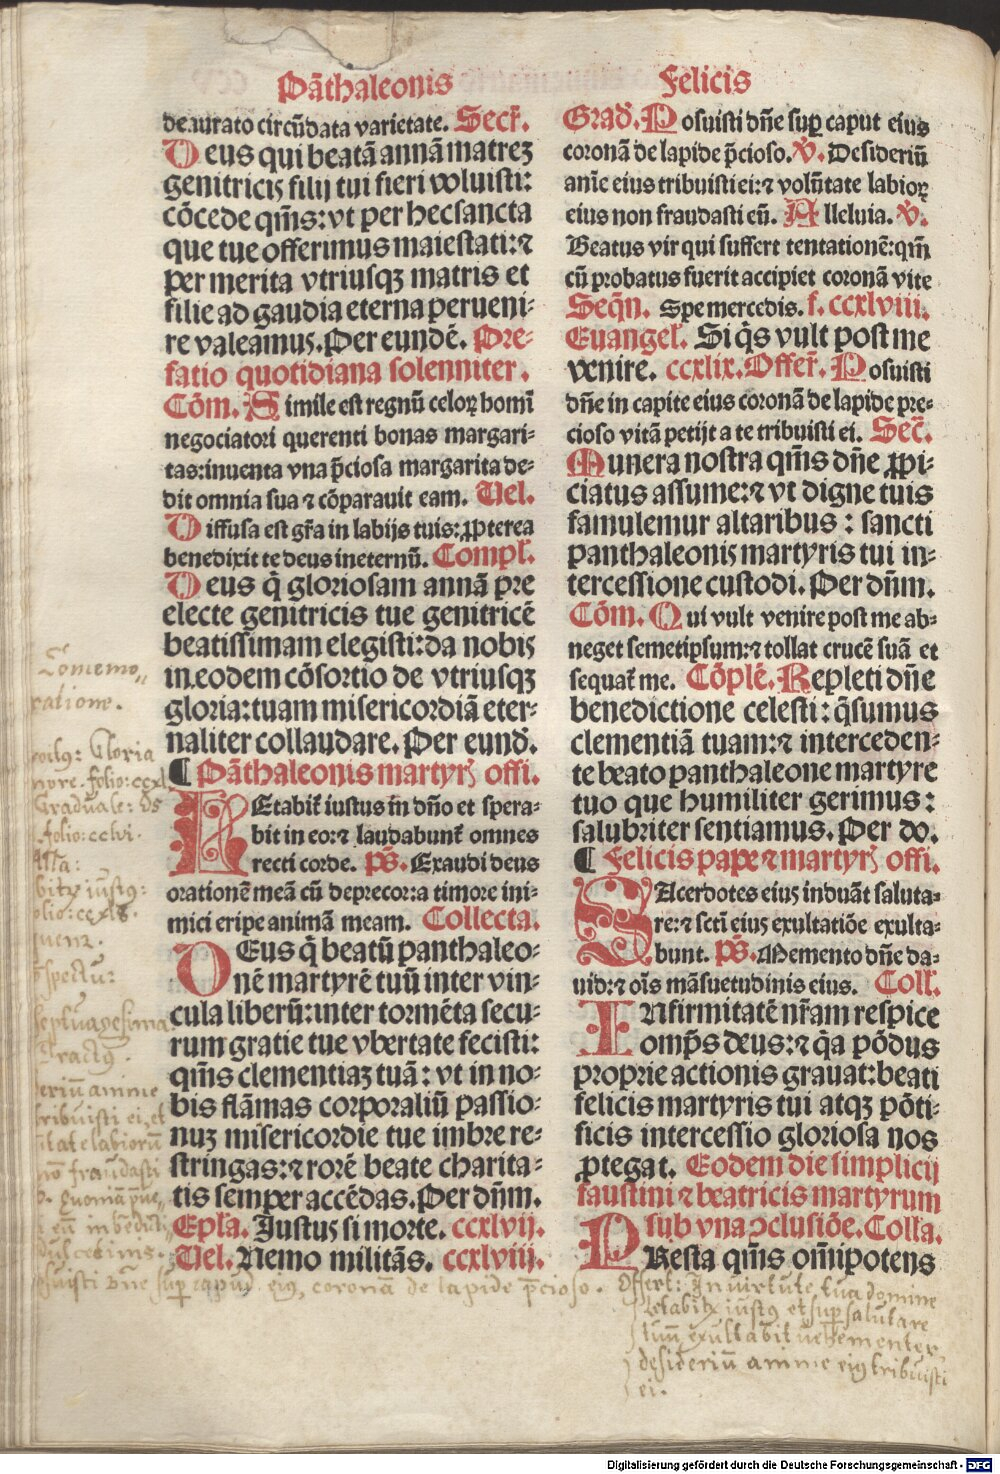 Pāthaleonis
Felicis
deaurato circūdata varietate. Secr̄.
Deus qui beatā annā matrez
genitricis filij tui fieri voluisti:
cōcede qm̄s: vt per hec sancta
que tue offerimus maiestati: ⁊
per merita vtriusqz matris et
filie ad gaudia eterna perueni-
re valeamus. Per eundē. Pre-
fatio quotidiana solenniter.
Cōm. Simile est regnū celoꝝ homī
negociatori querenti bonas margari-
tas: inuenta vna p̄ciosa margarita de-
dit omnia sua ⁊ cōparauit eam. Uel.
Diffusa est gr̄a in labijs tuis: ꝓpterea
benedixit te deus in eternū. Compl̄.
Deus q̄ gloriosam annā pre
electe genitricis tue genitricē
beatissimam elegisti: da nobis
in eodem cōsortio de vtriusqz
gloria: tuam misericordiā eter-
naliter collaudare. Per eund̄.
¶ Pāthaleonis martyr̄ offi.
LEtabit̄ iustus in̄ dn̄o et spera-
bit in eo: ⁊ laudabunt̄ omnes
recti corde. ps̄. Exaudi deus
orationē meā cū deprecor: a timore ini-
mici eripe animā meam. Collecta.
DEus q̄ beatū panthaleo-
nē martyrē tuū inter vin-
cula liberū: inter tormēta secu-
rum gratie tue vbertate fecisti:
qm̄s clementiaz tuā: vt in no-
bis flāmas corporaliū passio-
nuz misericordie tue imbre re-
stringas: ⁊ rorē beate charita-
tis semper accēdas. Per dn̄m.
Epl̄a. Justus si morte. ccxlvij.
Uel. Nemo militās. ccxlviij.
Grad̄. Posuisti dn̄e suꝑ caput eius
coronā de lapide p̄cioso. ℣. Desideriū
anīe eius tribuisti ei: ⁊ volūtate labioꝝ
eius non fraudasti eū. Alleluia. ℣.
Beatus vir qui suffert tentationē: qm̄
cū probatus fuerit accipiet coronā vite
Seqn̄. Spe mercedis. f. ccxlviii.
Euangel̄. Si q̄s vult post me
venire. ccxlix. Offer̄. Posuisti
dn̄e in capite eius coronā de lapide pre-
cioso vitā petijt a te tribuisti ei. Sec̄.
Munera nostra qm̄s dn̄e ꝓpi-
ciatus assume: ⁊ vt digne tuis
famulemur altaribus: sancti
panthaleonis martyris tui in-
tercessione custodi. Per dn̄m.
Cōm. Qui vult venire post me ab-
neget semetipsum: ⁊ tollat crucē suā et
sequat̄ me. Cōplē. Repleti dn̄e
benedictione celesti: q̄sumus
clementiā tuam: ⁊ interceden-
te beato panthaleone martyre
tuo que humiliter gerimus:
salubriter sentiamus. Per do.
¶ Felicis pape ⁊ martyr̄ offi.
SAcerdotes eius induāt saluta-
re: ⁊ scti eius exultatiōe exulta-
bunt. ps̄. Memento dn̄e da-
uid: ⁊ oīs māsuetudinis eius. Coll.
INfirmitatē nr̄am respice
omp̄s deus: ⁊ q̄a pōdus
proprie actionis grauat: beati
felicis martyris tui atqz pōti-
ficis intercessio gloriosa nos
ꝓtegat. Eodem die simplicij
faustini ⁊ beatricis martyrum
sub vna ↄclusiōe. Coll̄a.
PResta qm̄s om̄ipotens
Comemo
ratione.
Gloria
folio: ccxl
Graduale: Ds
folio: cclvi.
iustus:
Septuagesima
Tractus.
anime
tribuisti ei, et
labiorum
fraudasti
dulcedinis.
dn̄e sup caput eius, coronā de lapide p̄cioso.
Offert: In virtute tua domine
letabitr iustus et sup salutare
tuū exultabit vehementer
desideriū anime eius tribuisti
ei.
Digitalisierung gefördert durch die Deutsche Forschungsgemeinschaft - DFG